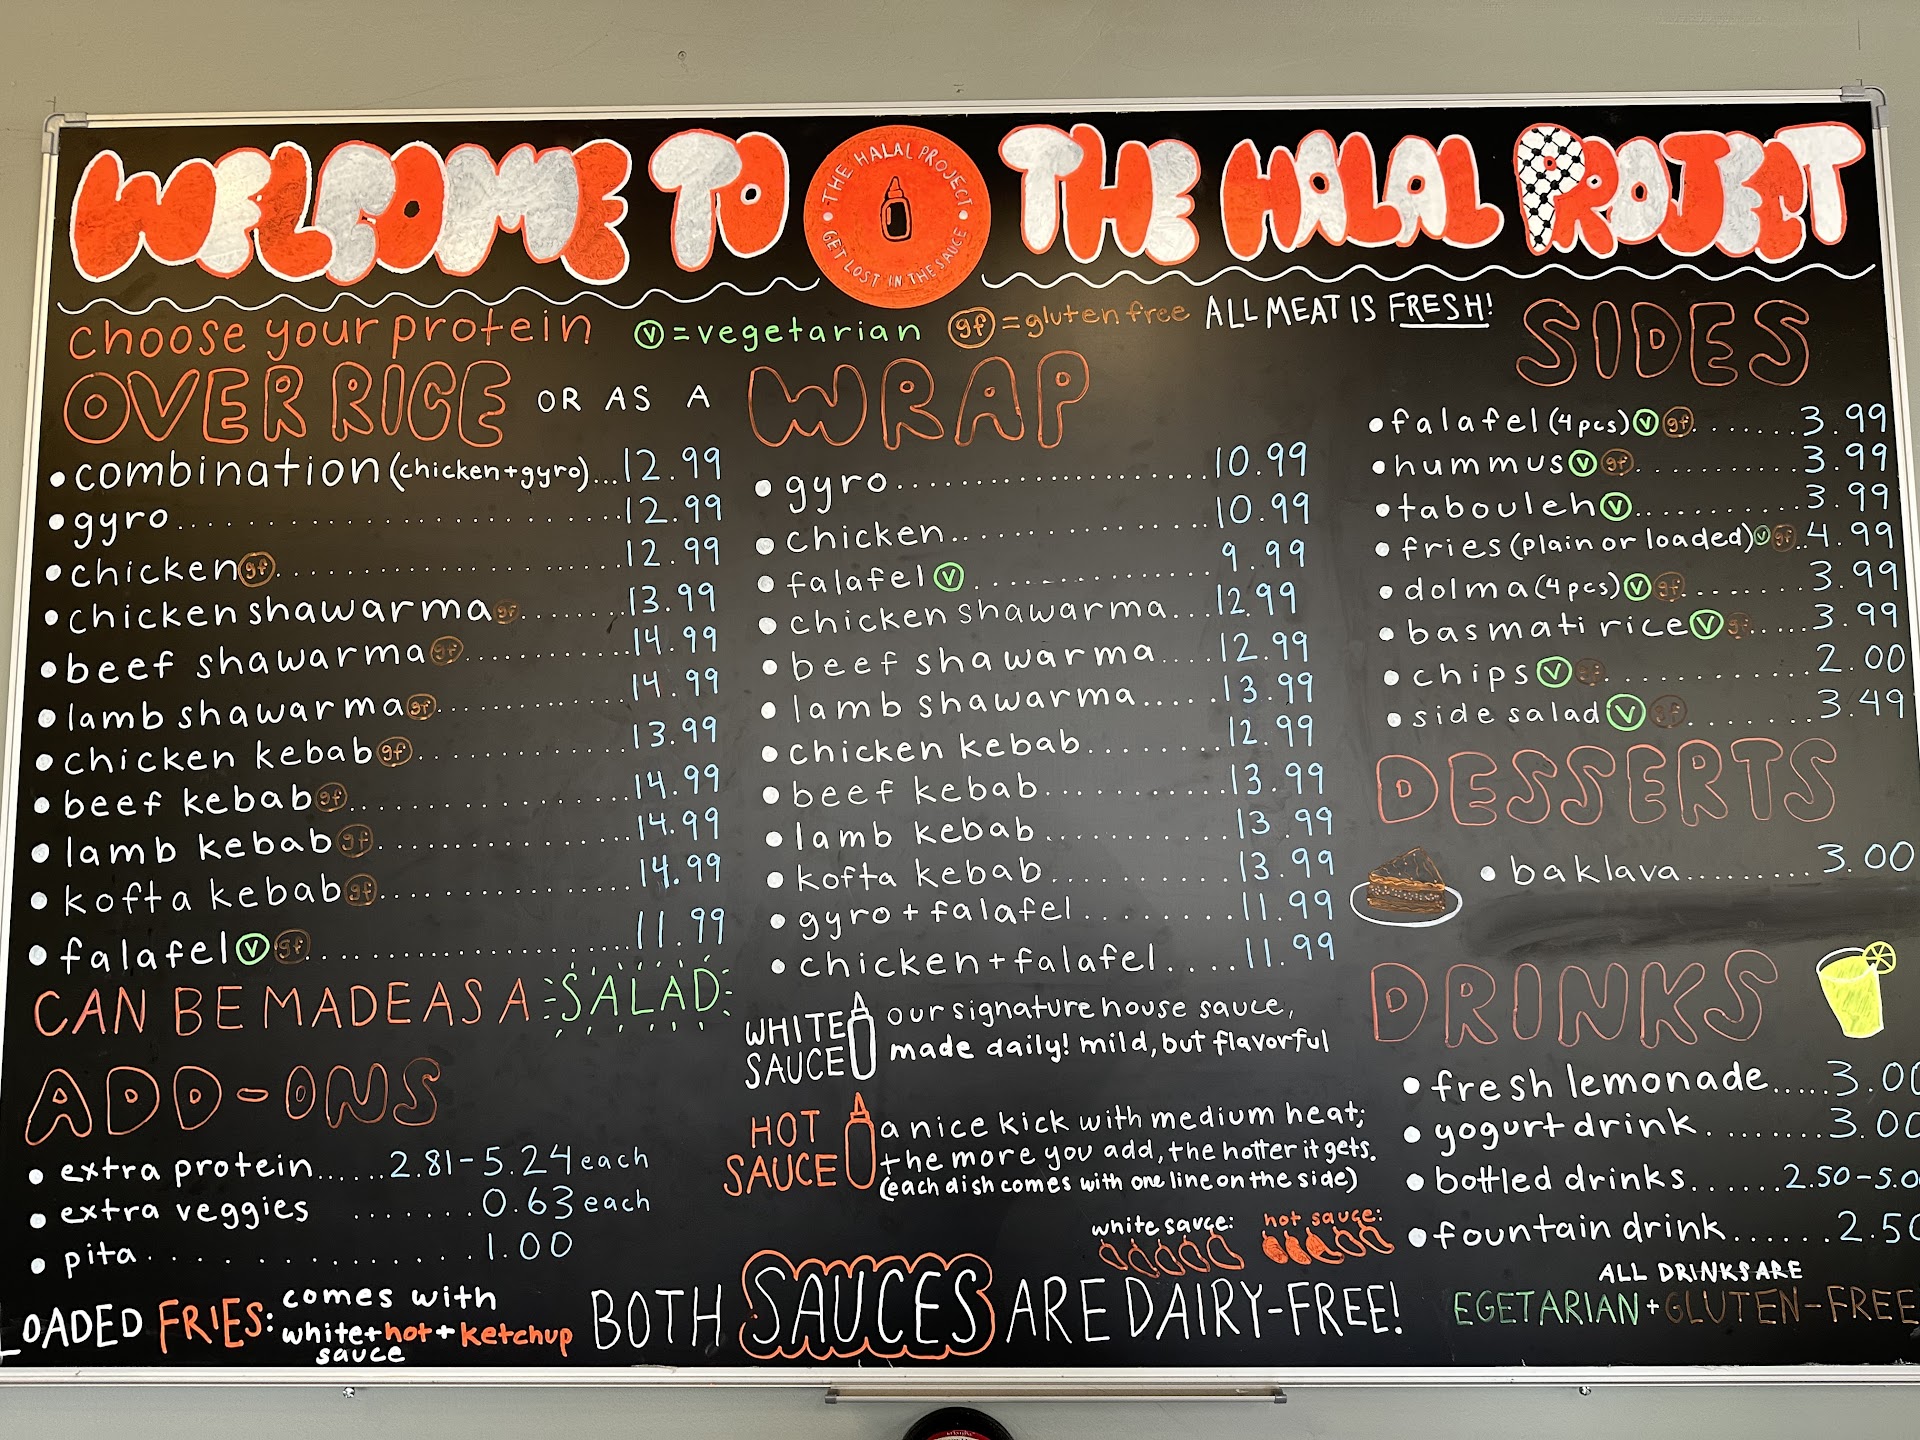 WELCOME TO THE HALAL PROJECT
THE HALAL PROJECT
GET LOST IN THE SAUCE
choose your protein
v = vegetarian gf = gluten free ALL MEAT IS FRESH!
OVER RICE OR AS A WRAP
combination (chicken+gyro)...12.99
gyro 12.99
chicken gf 12.99
chicken shawarma gf 13.99
beef shawarma gf 14.99
lamb shawarma gf 14.99
chicken kebab gf 13.99
beef kebab gf 14.99
lamb kebab gf 14.99
kofta kebab gf 14.99
falafel v gf 11.99
CAN BE MADE AS A SALAD
ADD-ONS
extra protein 2.81-5.24 each
extra veggies 0.63 each
pita 1.00
LOADED FRIES: comes with
white+hot+ketchup
sauce
gyro 10.99
chicken 10.99
falafel v 9.99
chicken shawarma 12.99
beef shawarma 12.99
lamb shawarma 13.99
chicken kebab 12.99
beef kebab 13.99
lamb kebab 13.99
kofta kebab 13.99
gyro + falafel 11.99
chicken + falafel 11.99
WHITE SAUCE our signature house sauce,
made daily! mild, but flavorful
HOT SAUCE a nice kick with medium heat;
the more you add, the hotter it gets.
(each dish comes with one line on the side)
white sauce: hot sauce:
BOTH SAUCES ARE DAIRY-FREE!
SIDES
falafel (4pcs) v gf 3.99
hummus v gf 3.99
tabouleh v 3.99
fries (plain or loaded) v gf 4.99
dolma (4pcs) v gf 3.99
basmati rice v gf 3.99
chips v gf 2.00
side salad v gf 3.49
DESSERTS
baklava 3.00
DRINKS
fresh lemonade 3.00
yogurt drink 3.00
bottled drinks 2.50-5.0
fountain drink 2.50
ALL DRINKS ARE
EGETARIAN + GLUTEN-FREE